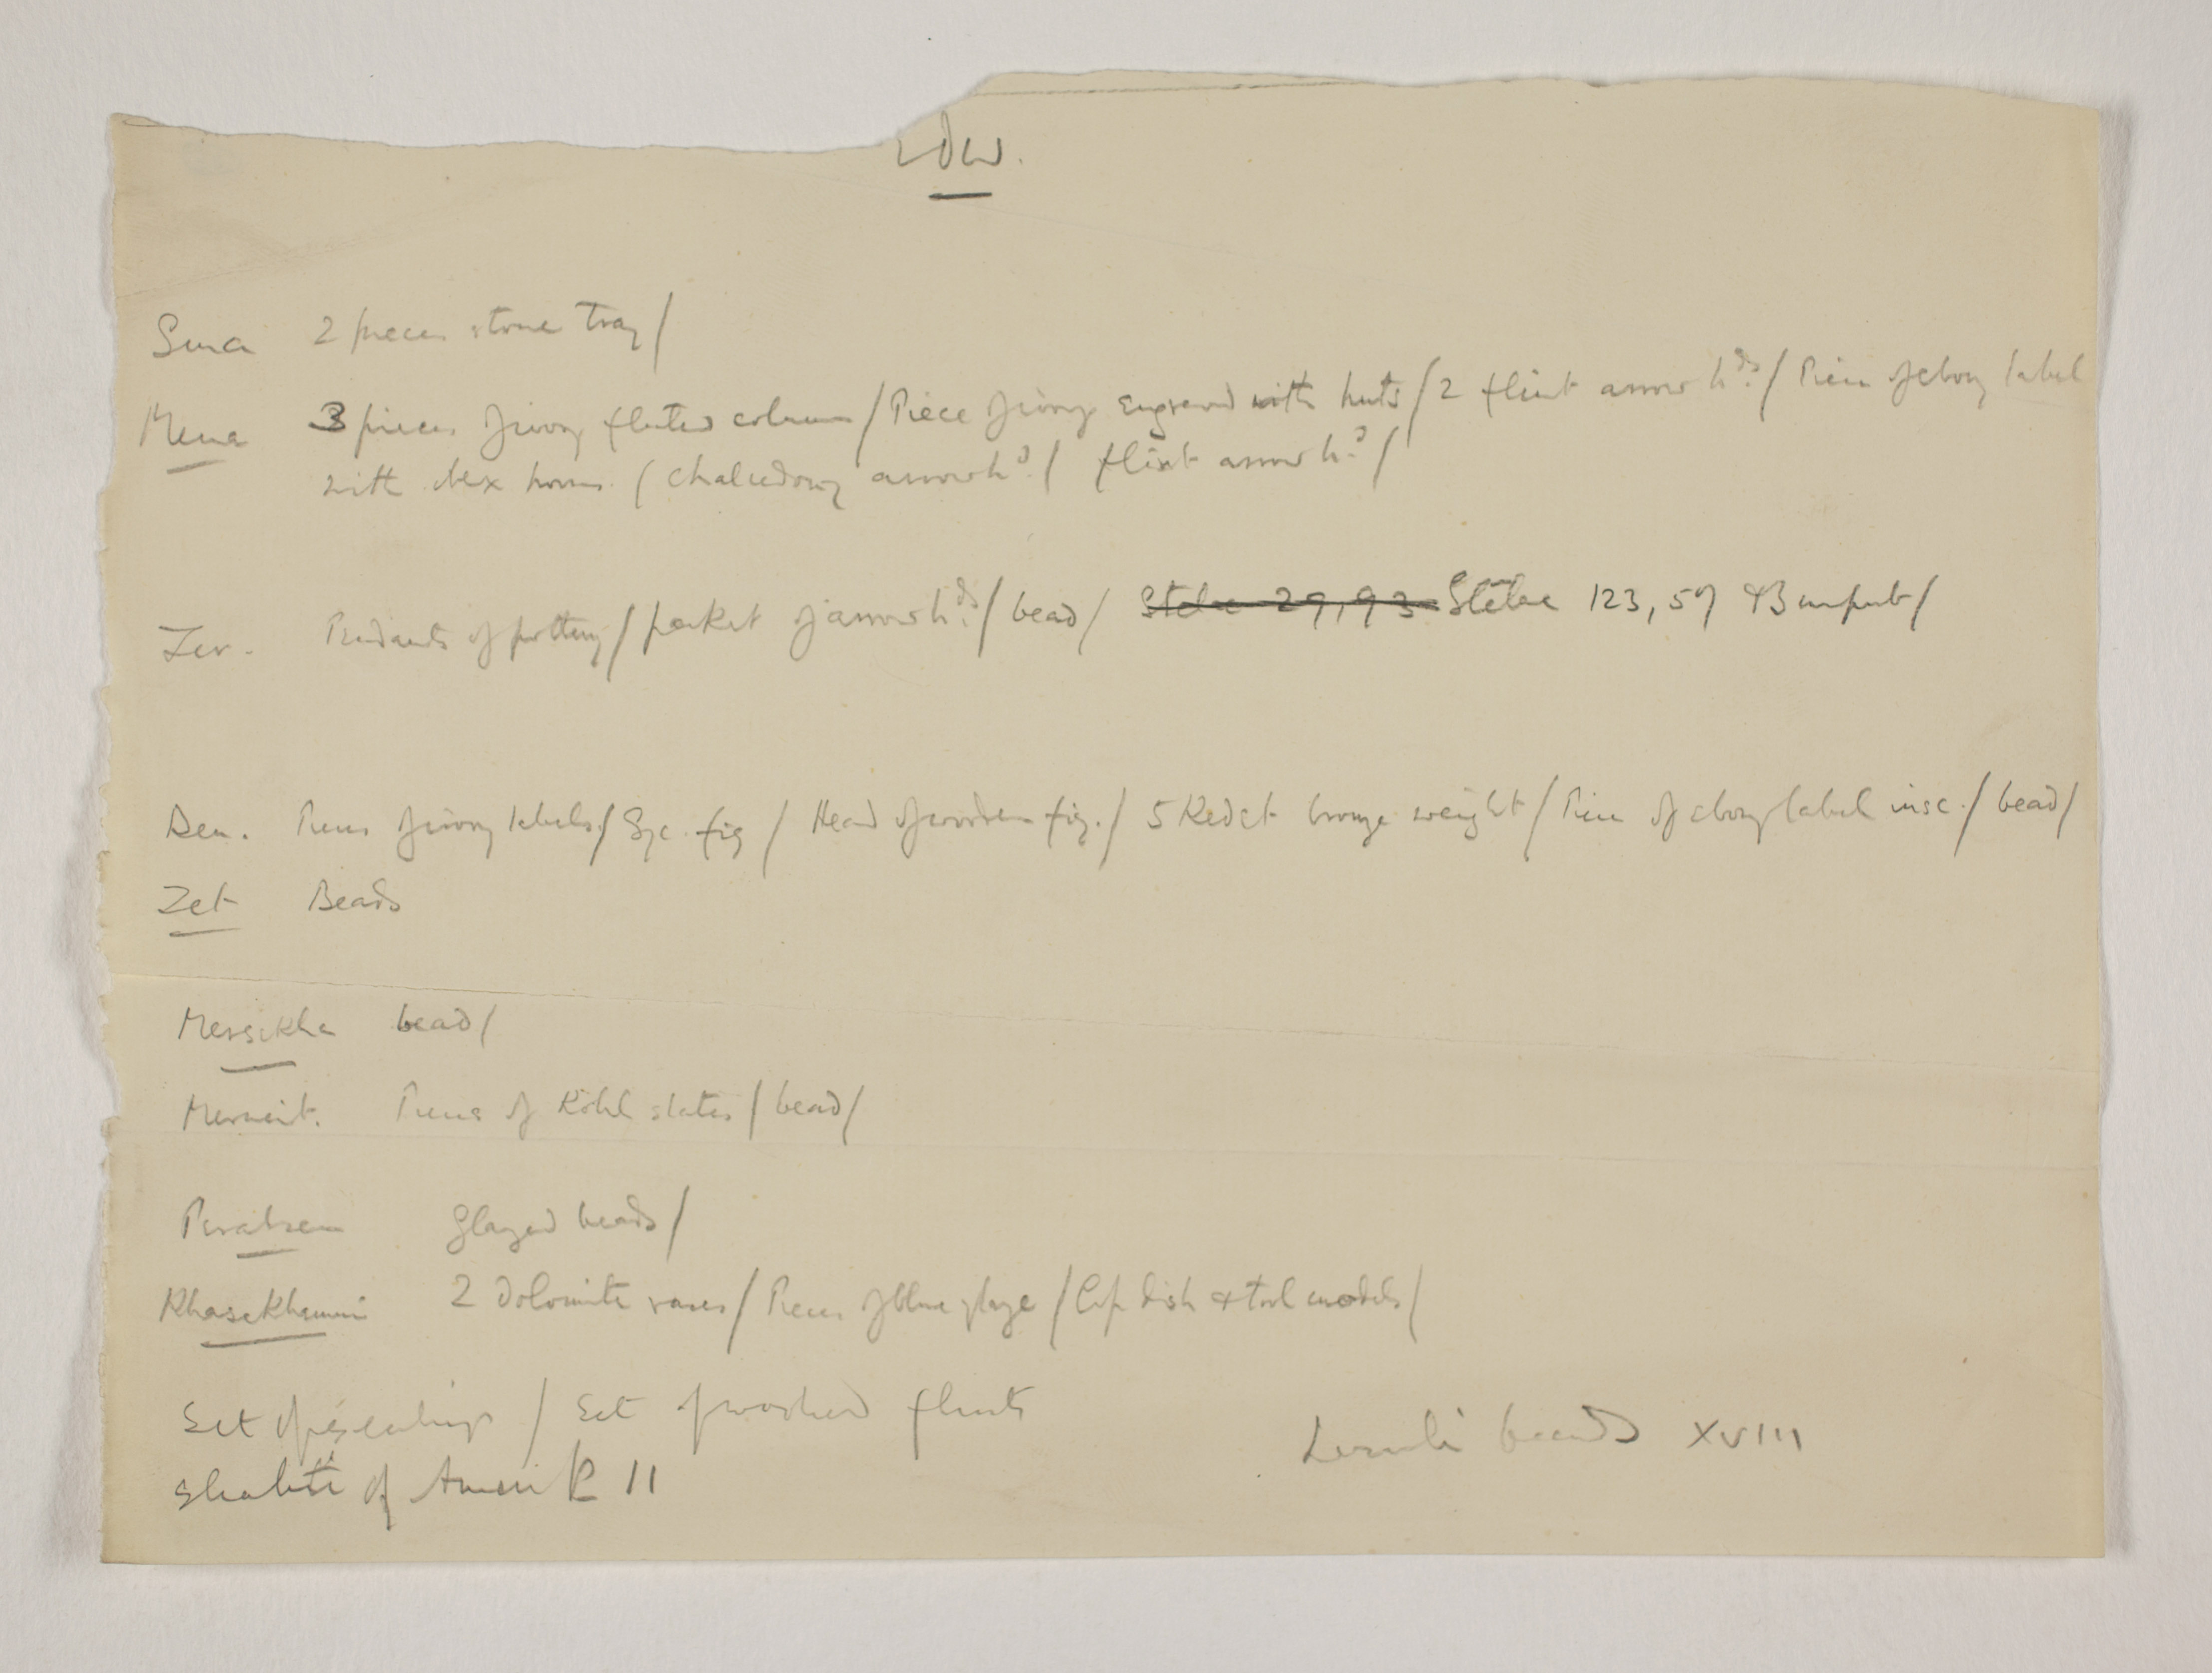 Sma 2 pieces stone tray/
Mena 3 pieces of ivory fluted column/Piece of ivory engraved with huts/2 flint arrow hds./Piece of ebony label
with ibex horns. (chalcedony arrowhd./ flint arrow hd./
Zer. Pendants of pottery/packet of arrow hds./bead/ Stelae 29, 93 Stelae 123, 59 & 3 imperf/
Den. Pieces of ivory labels/Syc. fig/Head of wooden fig./5 Kedet bronze weight/Piece of ebony label insc./bead/
Zet Beads
Mersekha bead/
Merneit. Pieces of Kohl slates/bead/
Perabsen Glazed beads/
Khasekhemui 2 Dolomite vases/Pieces of blue glaze/Cop. dish & tool models/
Set of sealings/Set of worked flints
beads XVIII
Shabti of II